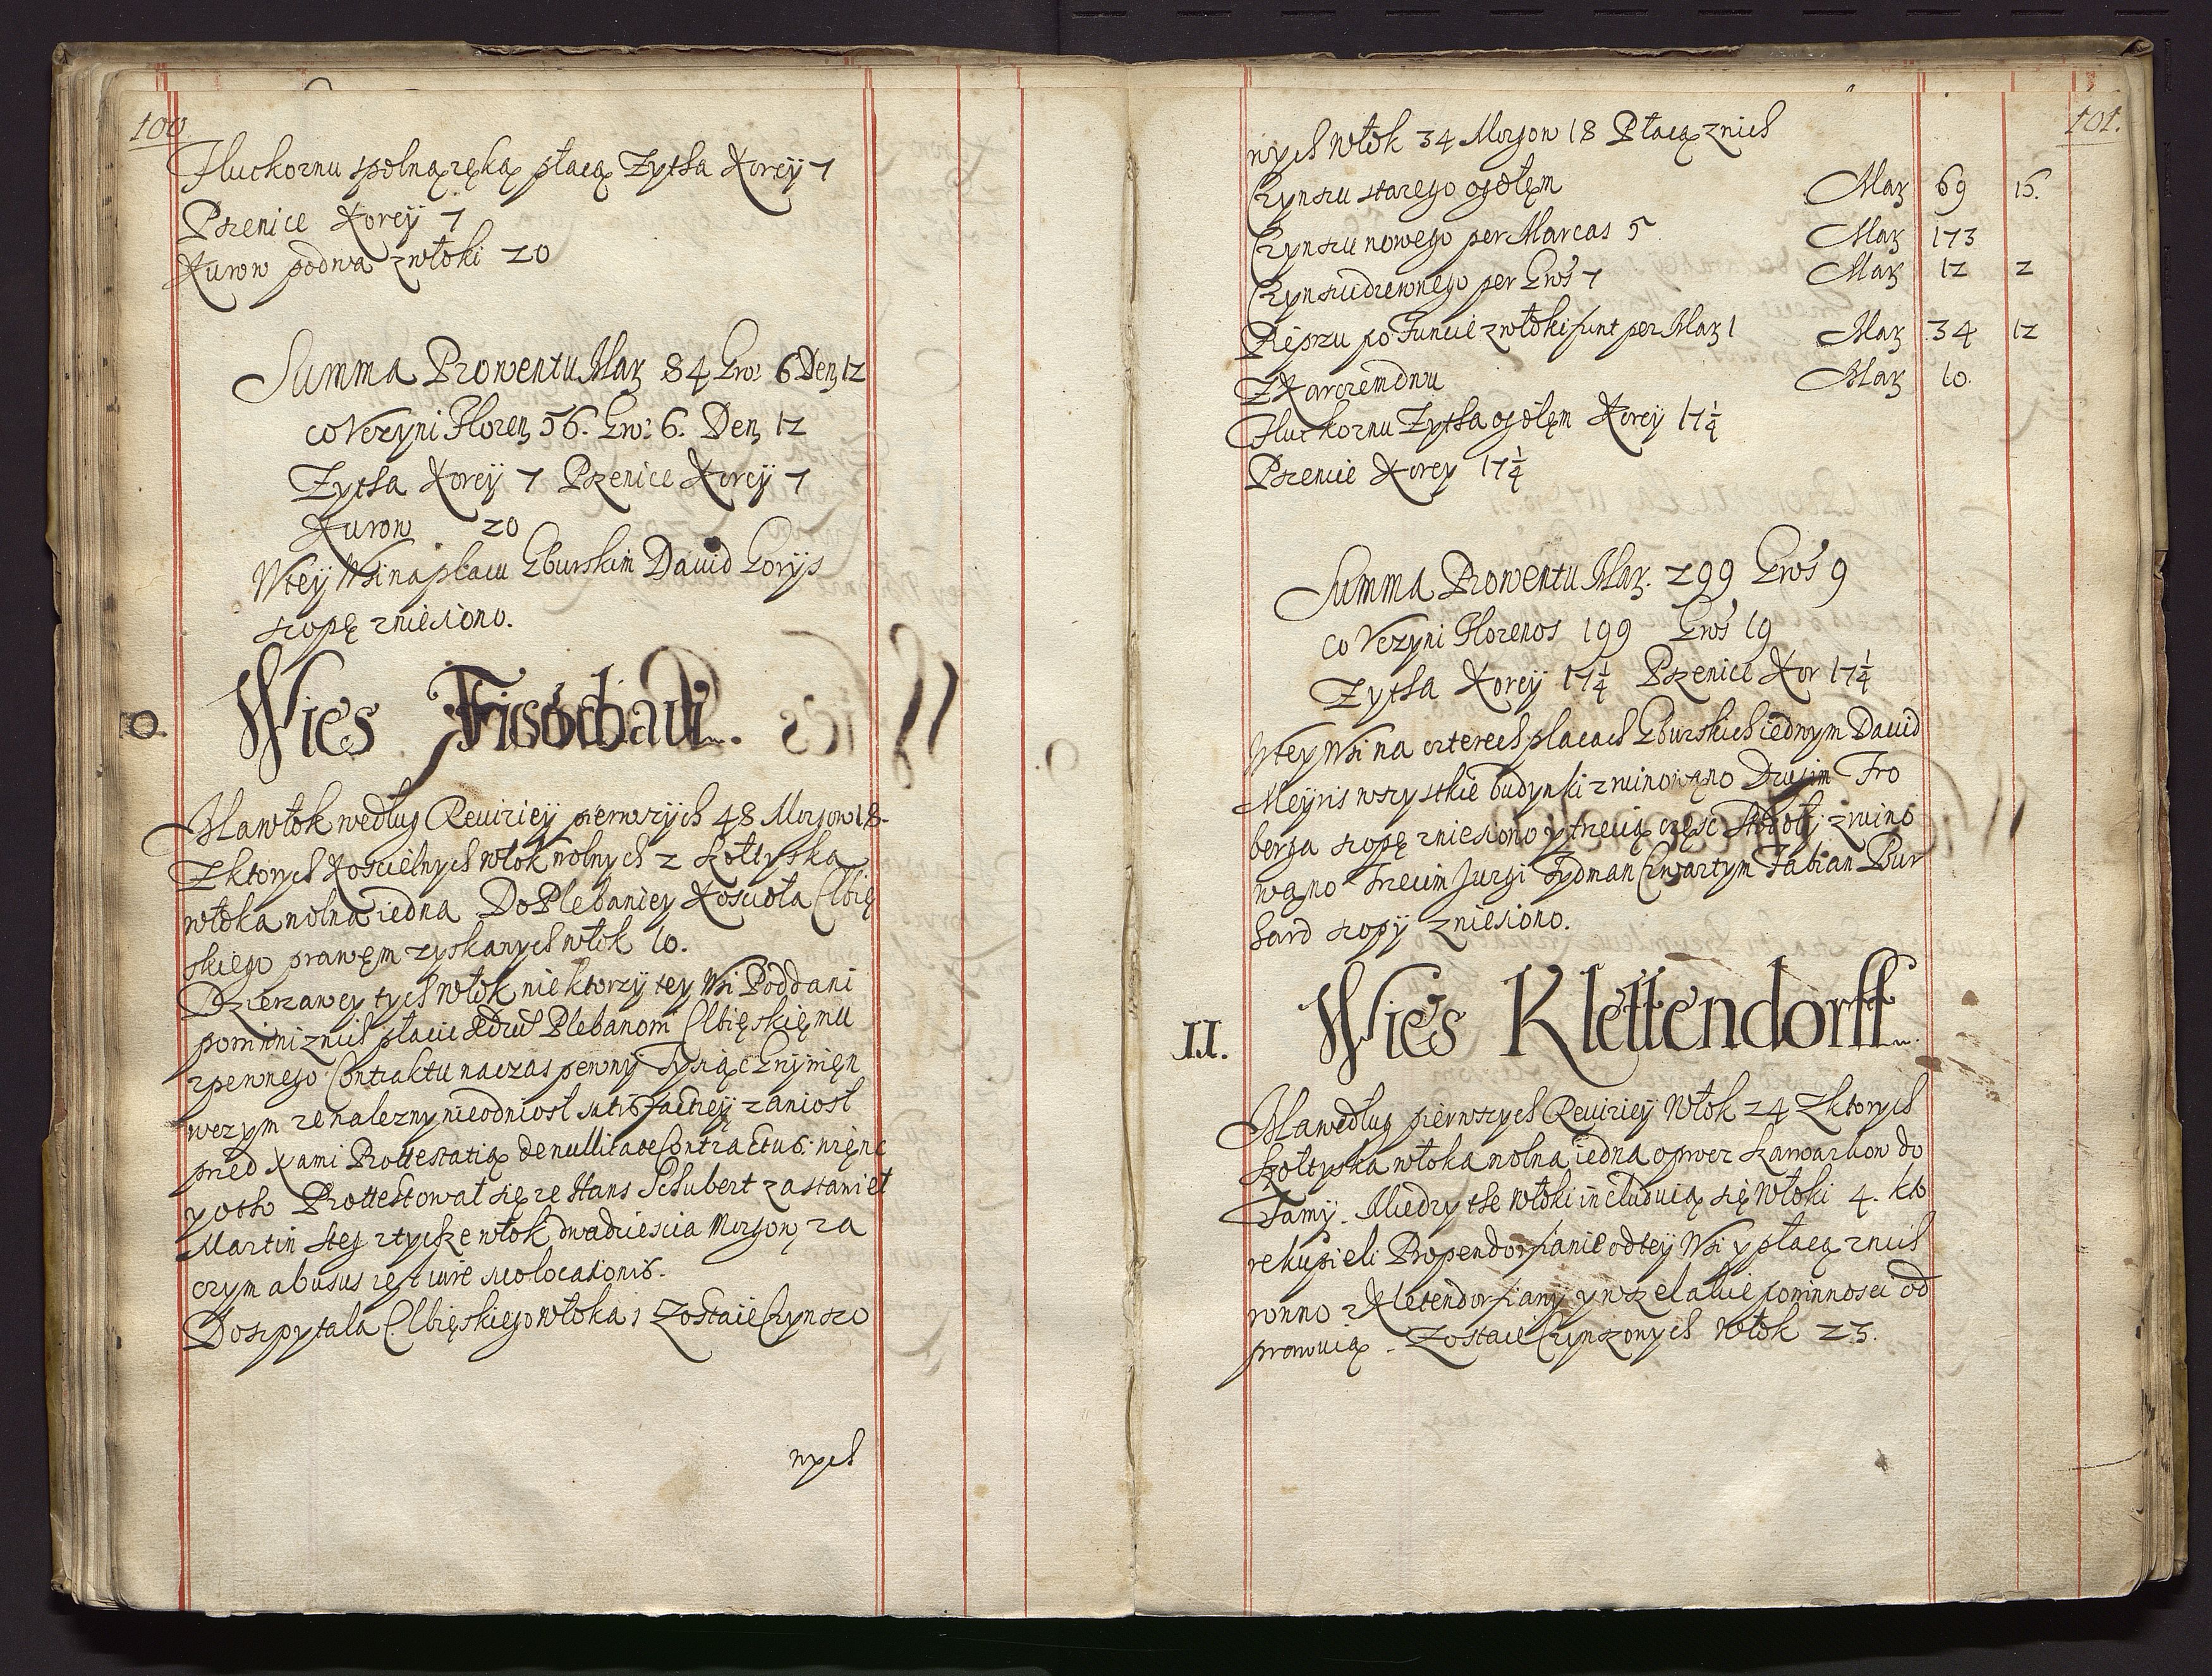 100
Fluckornu spolną ręką płacą Zytha Korcy 7
Pszenice Korcy 7
Kurow podwa zwłoki 20
Summa Prowentu Marz 84 Gro: 6 Den 12
co Vczyni Floren 56. Gro: 6. Den 12
Zytha Korcy 7 Pszenice Korcy 7
Kurow 20
Wtey Wsi naplacu Gburskim Dauid Gorys
szopę zniesiono.
O. Wies Fischau
Ma włok według Reuiziey pierwszych 48 Morgow 18.
Zktorych Koscielnych włok wolnych 2 szołtyska
włoka wolna iedna Do Plebaniey Kosciola Elbię
skiego prawęm zyskanych włok 10.
Dzierzawcy tych Włok niektorzy tey Wsi Poddani
powinni znich płacic Plebanom Elbięskięmu
zpewnego Contraktu naczas pewny Tysiąc Grzywięn
wczym ze nalezny nieodniosł satisfactiey zaniosł
pred Xami Prottestatią denullitate Contractus.
y otho Prottestował się ze Hans Schubert zastawiet
Martin steg ztychze włok dwadziescia Morgow za
czym abusus iest iure suo locationis.
Doszpytala Elbięskiego włoka 1 Zostaie Czynszo
wych
101.
wych Włok 34 Morgow 18 Płacą znich
Czynszu starego ogołęm Marz 69 16.
Czynszu nowego per Marcas 5 Marz 173
Czynszudrewnego per Gros 7 Marz 12 2
Piėprzu po Funcie zwłoki funt per Marz 1 Marz 34 12
ZKarczem dwu Marz 10.
Fluckornu Zytha ogołęm Korcy 17 1/4
Pszenice Korcy 17 1/4
Summa Prowentu Marz. 299 Gros 9
co Vczyni Florenos 199 Gros 19
Zytha Korcy 17 1/4 Pszenice Kor 17 1/4
Wtey Wsi na czterech placach Gburskich iednym Dauid
Meyris wszystkie budynki zruinowąno Drugim Fro
berga szopę zniesiono y trzecią częsc zruino
wąno Trzecim Jurgi Tydman Czwartym Fabian Bur
hard szopy zniesiono.
II. Wies Klettendorff
Ma według pierwszych Reuiziey Włok 24 Zktorych
szołtyska włoka wolna iedna oprocz szarwarkow do
Tamy. Miedzy the włoki includuią się Włoki 4. kto
re kupieli Propendorfianie odtey Wsi y płacą znich
rowno z Kletendorfiany y wszelakie powinnosci od
prawuią. Zostaie Czynszowych Włok 23.